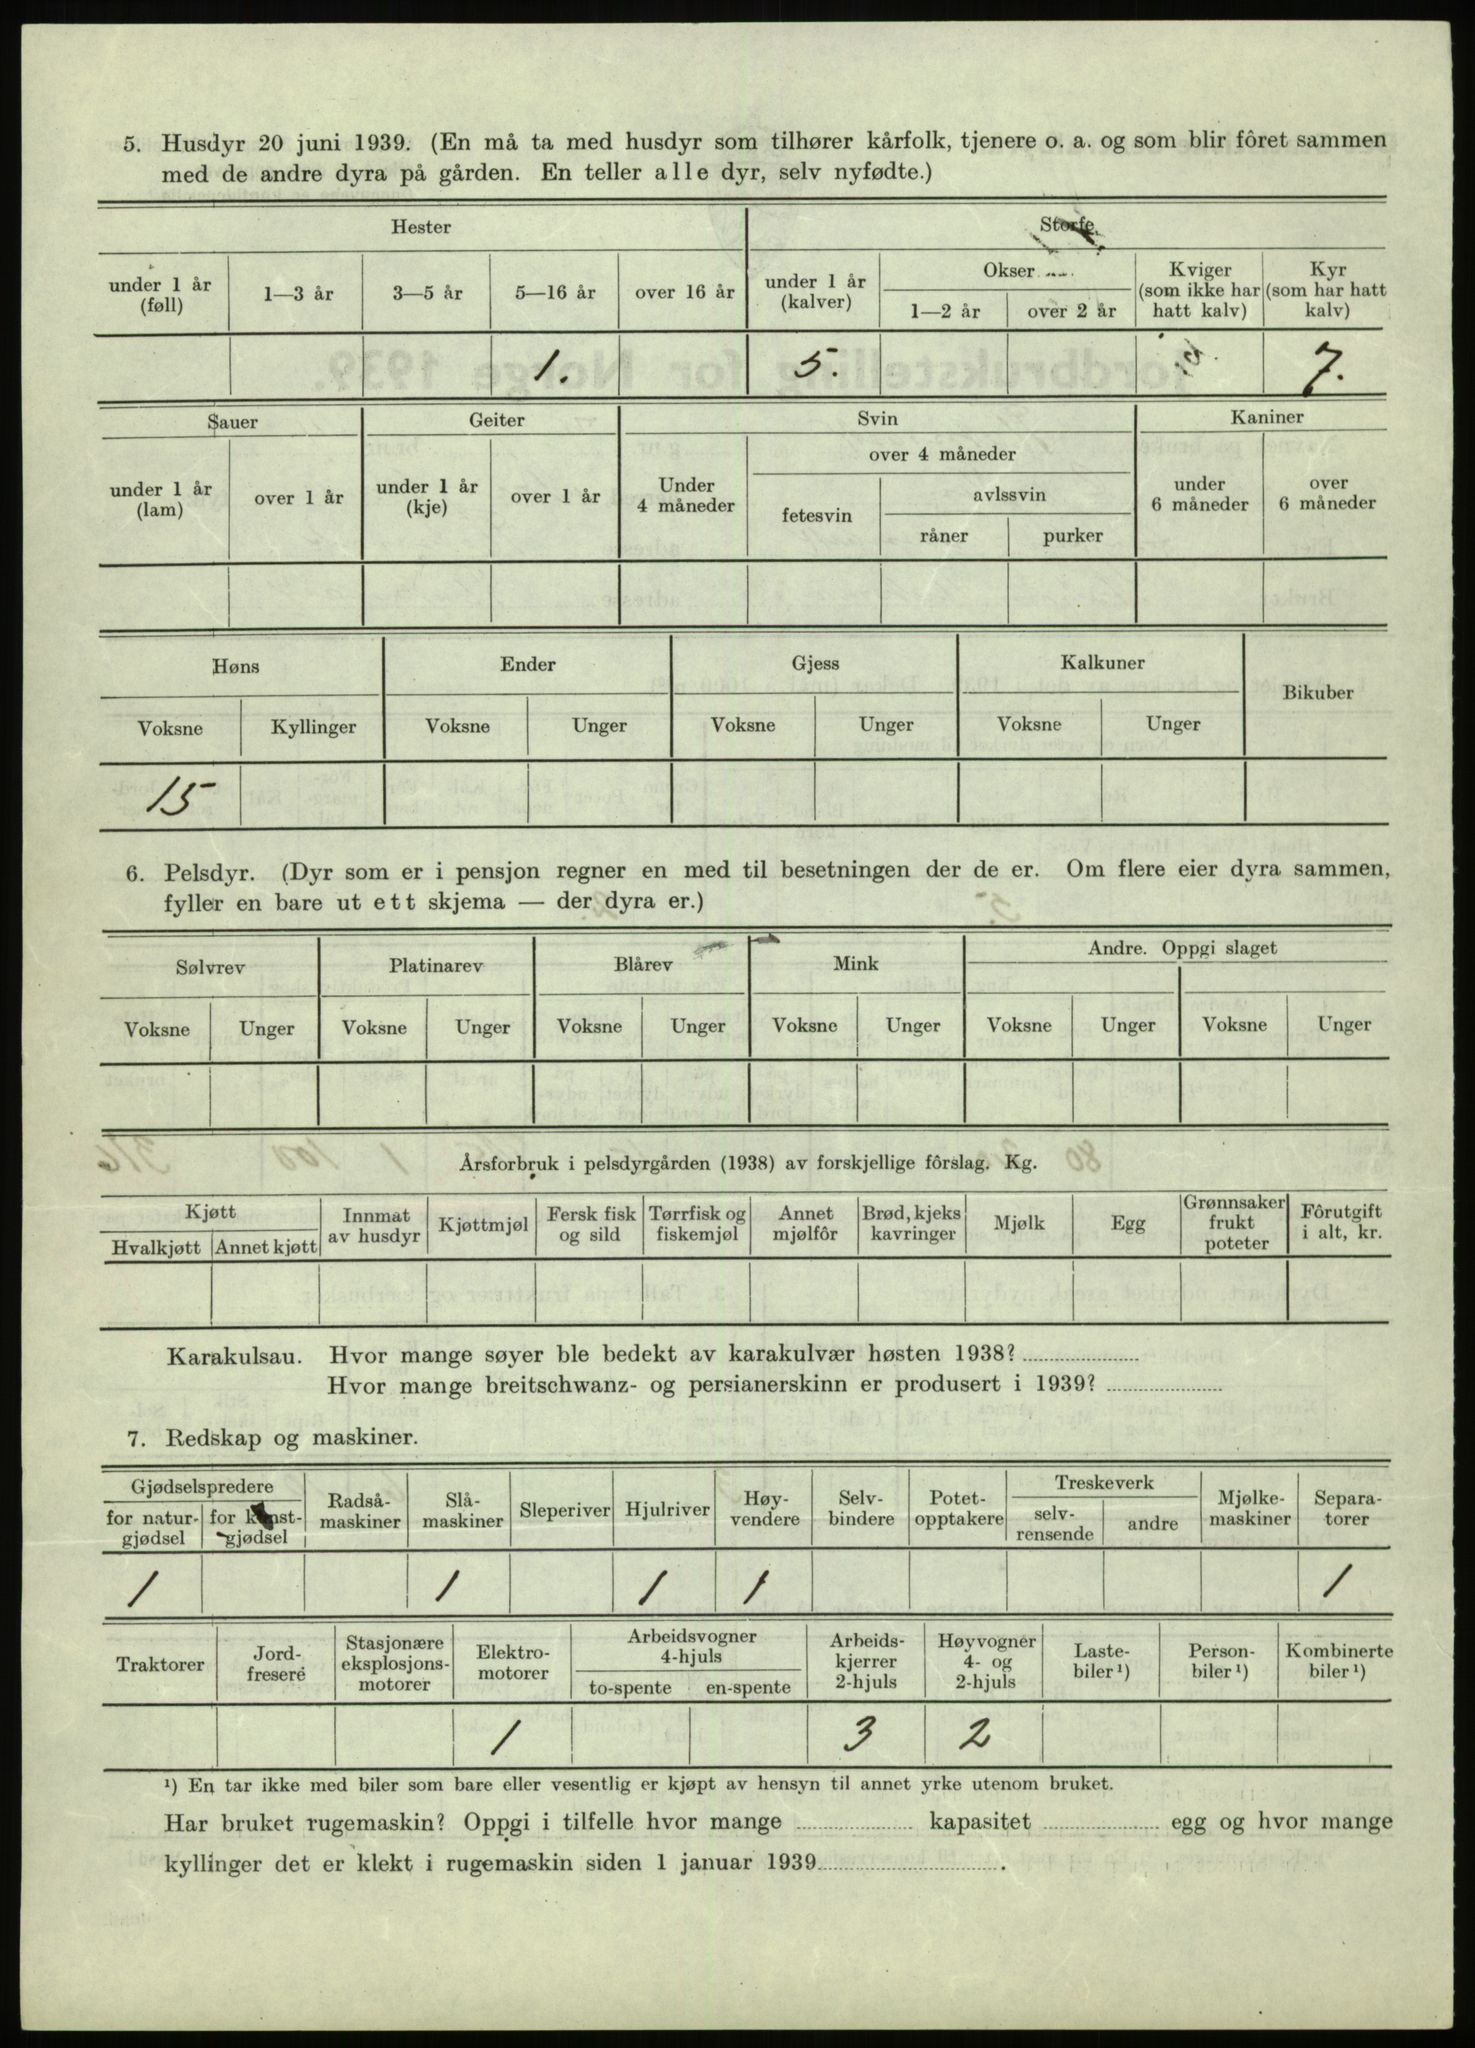 5. Husdyr 20 juni 1939. (En må ta med husdyr som tilhører kårfolk, tjenere o. a. og som blir fôret sammen
med de andre dyra på gården. En teller alle dyr, selv nyfødte.)
Hester Storfe.
under 1 år (føll) 1—3 år 3—5 år 5—16 år over 16 år under 1 år (kalver) Okser 1—2 år over 2 år Kviger (som ikke har hatt kalv) Kyr (som har hatt kalv)
1. 5. 7.
Sauer Geiter Svin Kaniner
under 1 år (lam) over 1 år under 1 år (kje) over 1 år Under 4 måneder over 4 måneder fetesvin avlssvin råner purker under 6 måneder over 6 måneder
Høns Ender Gjess Kalkuner Bikuber
Voksne Kyllinger Voksne Unger Voksne Unger Voksne Unger
15
6. Pelsdyr. (Dyr som er i pensjon regner en med til besetningen der de er. Om flere eier dyra sammen,
fyller en bare ut ett skjema — der dyra er.)
Sølvrev Platinarev Blårev Mink Andre. Oppgi slaget
Voksne Unger Voksne Unger Voksne Unger Voksne Unger Voksne Unger Voksne Unger
Årsforbruk i pelsdyrgården (1938) av forskjellige fôrslag. Kg.
Kjøtt Hvalkjøtt Annet kjøtt Innmat av husdyr Kjøttmjøl Fersk fisk og sild Tørrfisk og fiskemjøl Annet mjølfôr Brød, kjeks kavringer Mjølk Egg Grønnsaker frukt poteter Fôrutgift i alt, kr.
Karakulsau. Hvor mange søyer ble bedekt av karakulvær høsten 1938?
Hvor mange breitschwanz- og persianerskinn er produsert i 1939?
7. Redskap og maskiner.
Gjødselspredere for natur-gjødsel for kunst-gjødsel Radså-maskiner Slå-maskiner Sleperiver Hjulriver Høy-vendere Selv-bindere Potet-opptakere Treskeverk selv-rensende andre Mjølke-maskiner Separa-torer
1 1 1 1 1
Traktorer Jord-fresere Stasjonære eksplosjons-motorer Elektro-motorer Arbeidsvogner 4-hjuls to-spente en-spente Arbeids-kjerrer 2-hjuls Høyvogner 4- og 2-hjuls Laste-biler ¹) Person-biler ¹) Kombinerte biler ¹)
1 3 2
¹) En tar ikke med biler som bare eller vesentlig er kjøpt av hensyn til annet yrke utenom bruket.
Har bruket rugemaskin? Oppgi i tilfelle hvor mange kapasitet egg og hvor mange
kyllinger det er klekt i rugemaskin siden 1 januar 1939.